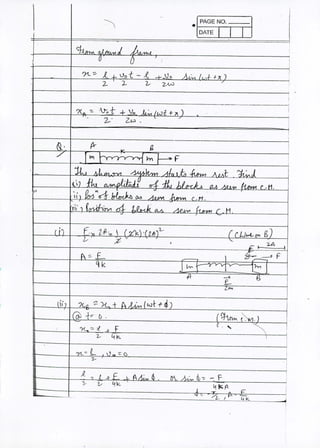 PAGE NO.
DATE
From ground frame,
x = l/2 + v₀t/2 - l/2 + v₀/2ω sin(ωt + π)
xₐ = v₀t/2 + v₀/2ω sin(ωt + π)
Q. A K B
m m → F
The shown system starts from rest. Find
(i) the amplitude of the blocks as seen from C.M.
(ii) Pos of blocks as seen from C.M.
(iii) Position of block as seen from C.M.
(i) F/2 × 2A = 1/2 (2K) (2A)² (Choose B)
2A
A = F/4K
F
m m
A B
F/2m
(ii) x_B = x₀ + A sin(ωt + ϕ)
@ t = 0. (From C.M.)
x₀ = l/2 + F/4K
x = l/2, v₀ = 0
l/2 = l/2 + F/4K + A sin ϕ. or sin ϕ = - F/4KA
ϕ = -π/2, A = F/4K